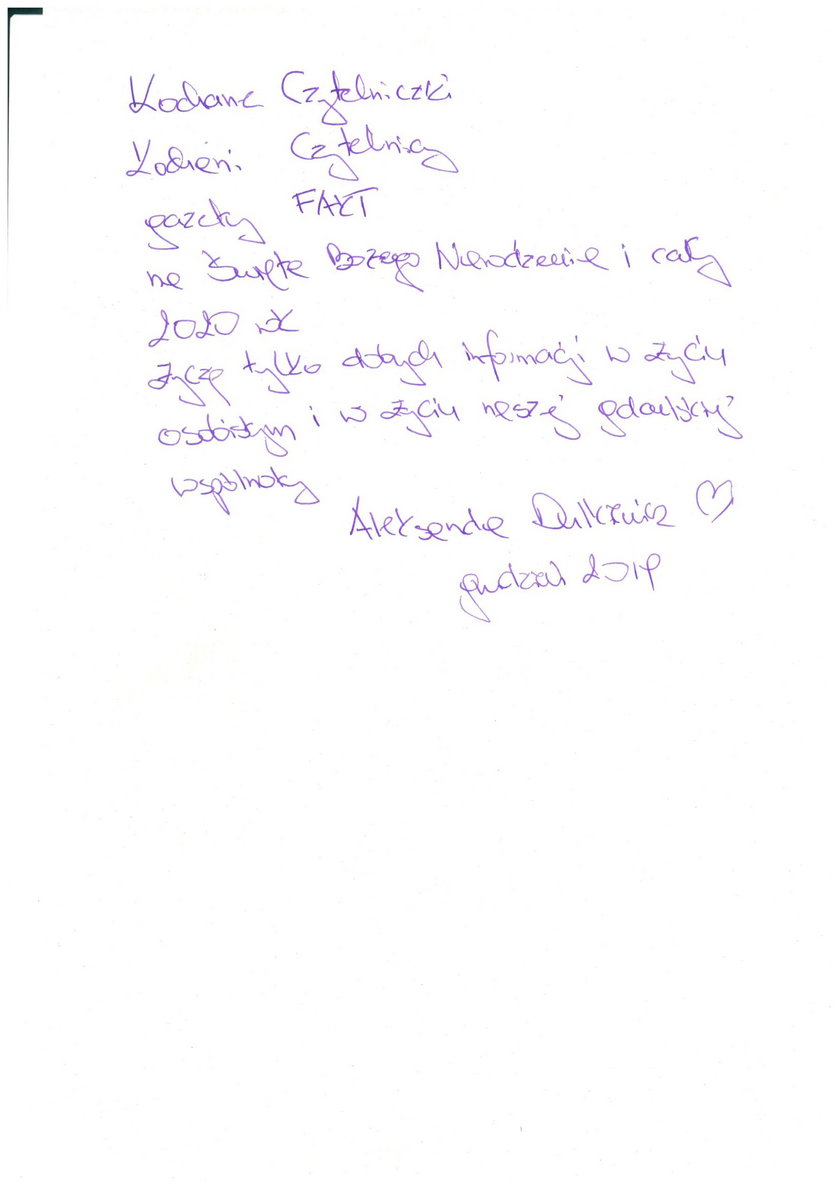 Kochane Czytelniczki
Kochani Czytelnicy
gazety FAKT
na Święta Bożego Narodzenia i cały
2020 rok
życzę tylko dobrych informacji w życiu
osobistym i w życiu naszej gdańskiej
wspólnoty
Aleksandra Dulkiewicz ♡
grudzień 2019